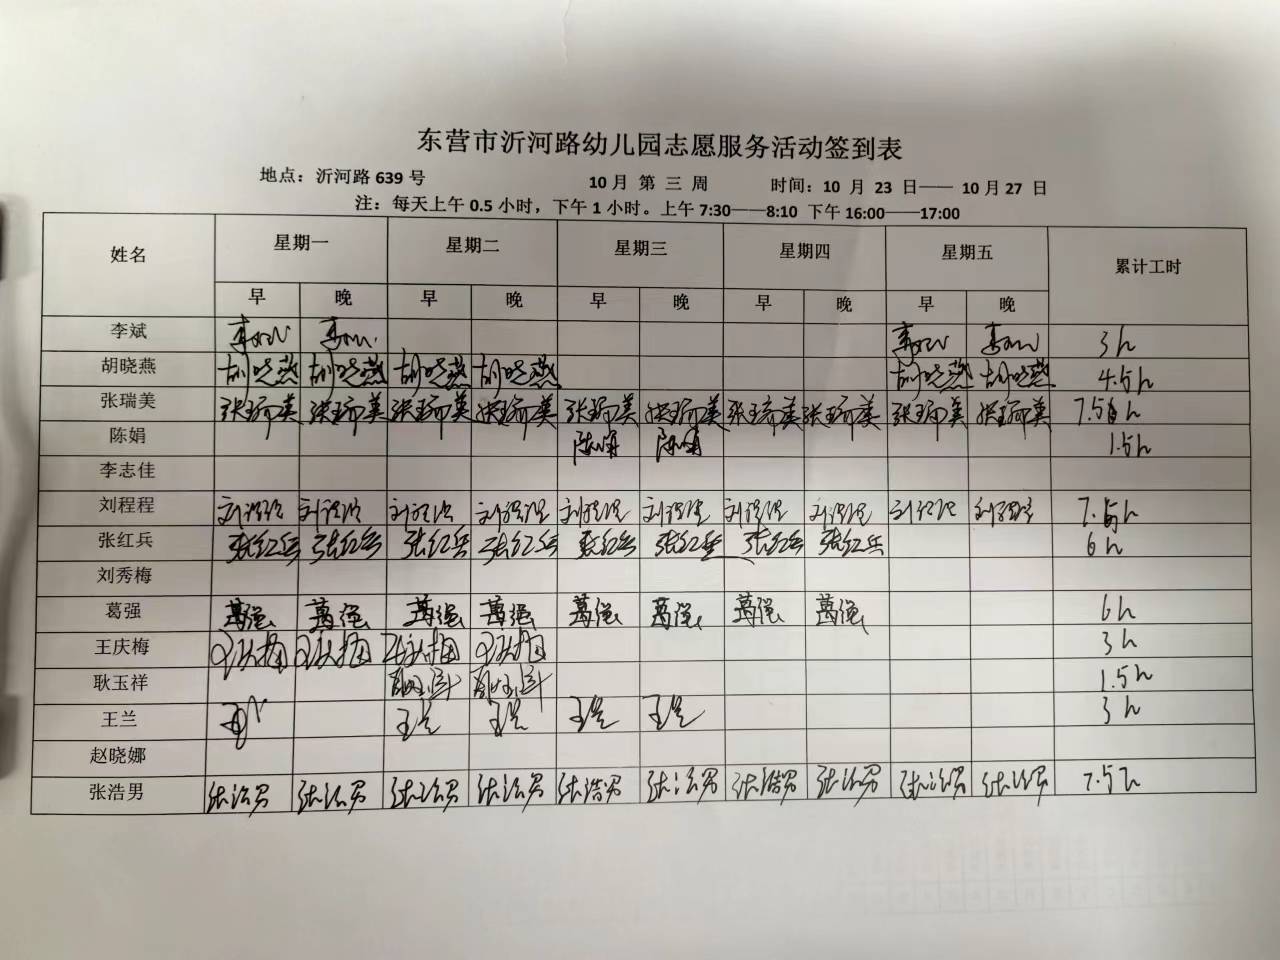 东营市沂河路幼儿园志愿服务活动签到表
地点：沂河路 639 号 10 月 第 三 周 时间：10 月 23 日—— 10 月 27 日
注：每天上午 0.5 小时，下午 1 小时。上午 7:30——8:10 下午 16:00——17:00
姓名 星期一 星期二 星期三 星期四 星期五 累计工时
早 晚 早 晚 早 晚 早 晚 早 晚
李斌 李斌 李斌 李斌 李斌 3h
胡晓燕 胡晓燕 胡晓燕 胡晓燕 胡晓燕 胡晓燕 胡晓燕 4.5h
张瑞美 张瑞美 张瑞美 张瑞美 张瑞美 张瑞美 张瑞美 张瑞美 张瑞美 张瑞美 张瑞美 7.5h
陈娟 陈娟 陈娟 1.5h
李志佳
刘程程 刘程程 刘程程 刘程程 刘程程 刘程程 刘程程 刘程程 刘程程 刘程程 刘程程 7.5h
张红兵 张红兵 张红兵 张红兵 张红兵 张红兵 张红兵 张红兵 张红兵 6h
刘秀梅
葛强 葛强 葛强 葛强 葛强 葛强 葛强 葛强 葛强 6h
王庆梅 王庆梅 王庆梅 王庆梅 王庆梅 3h
耿玉祥 耿玉祥 耿玉祥 1.5h
王兰 王兰 王兰 王兰 王兰 3h
赵晓娜
张浩男 张浩男 张浩男 张浩男 张浩男 张浩男 张浩男 张浩男 张浩男 张浩男 张浩男 7.5h